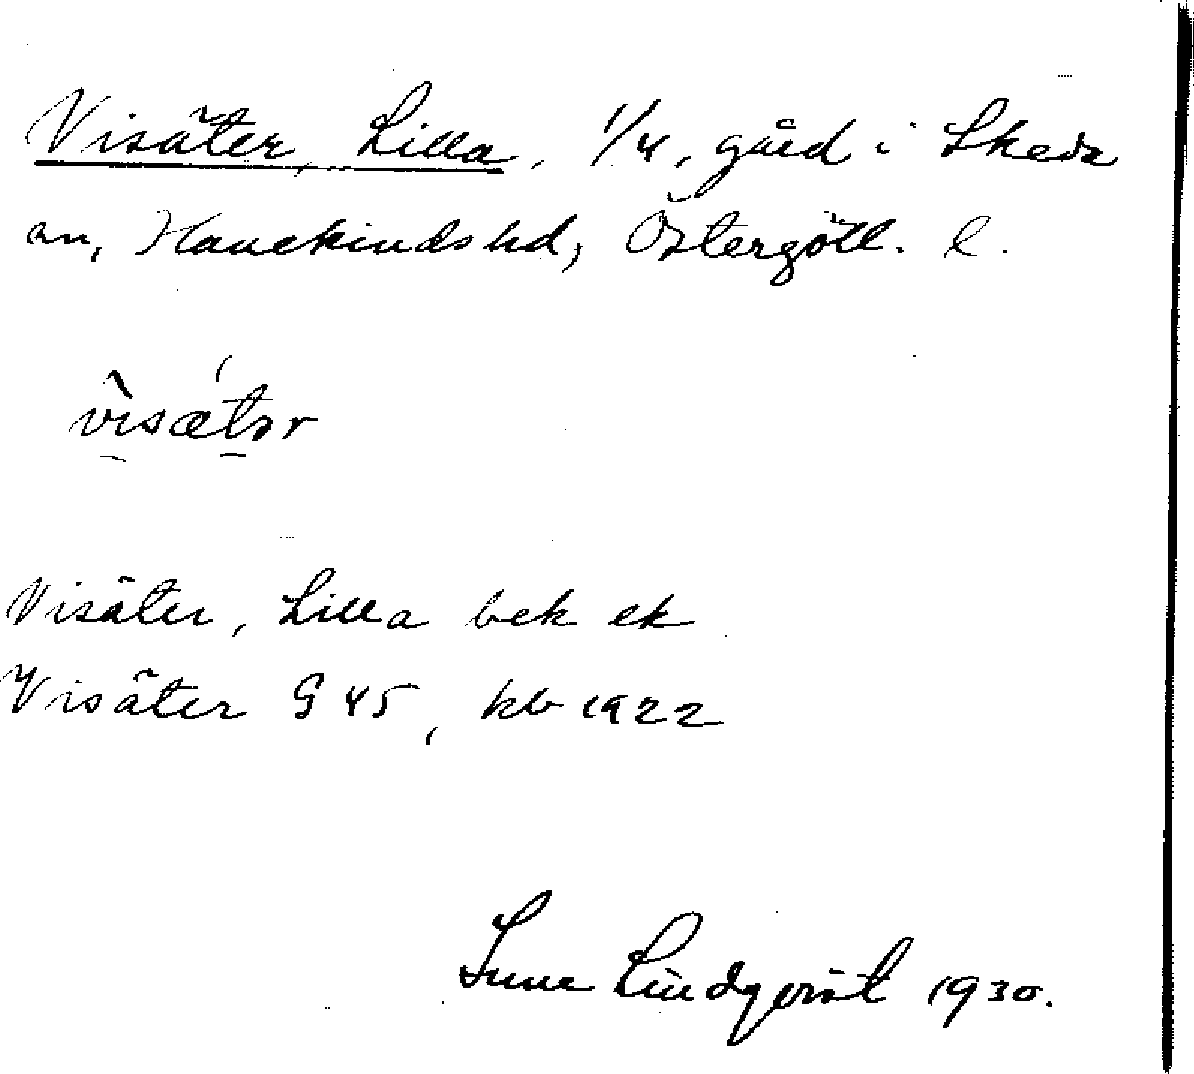 Visäter, Lilla, 1/4, gård i Skeda
sn, Hanekinds hd, Östergötl. l.
vìsǽtər
Visäter, Lilla bek ek
Visäter G 45, kb 1922
Sune Lindqvist 1930.